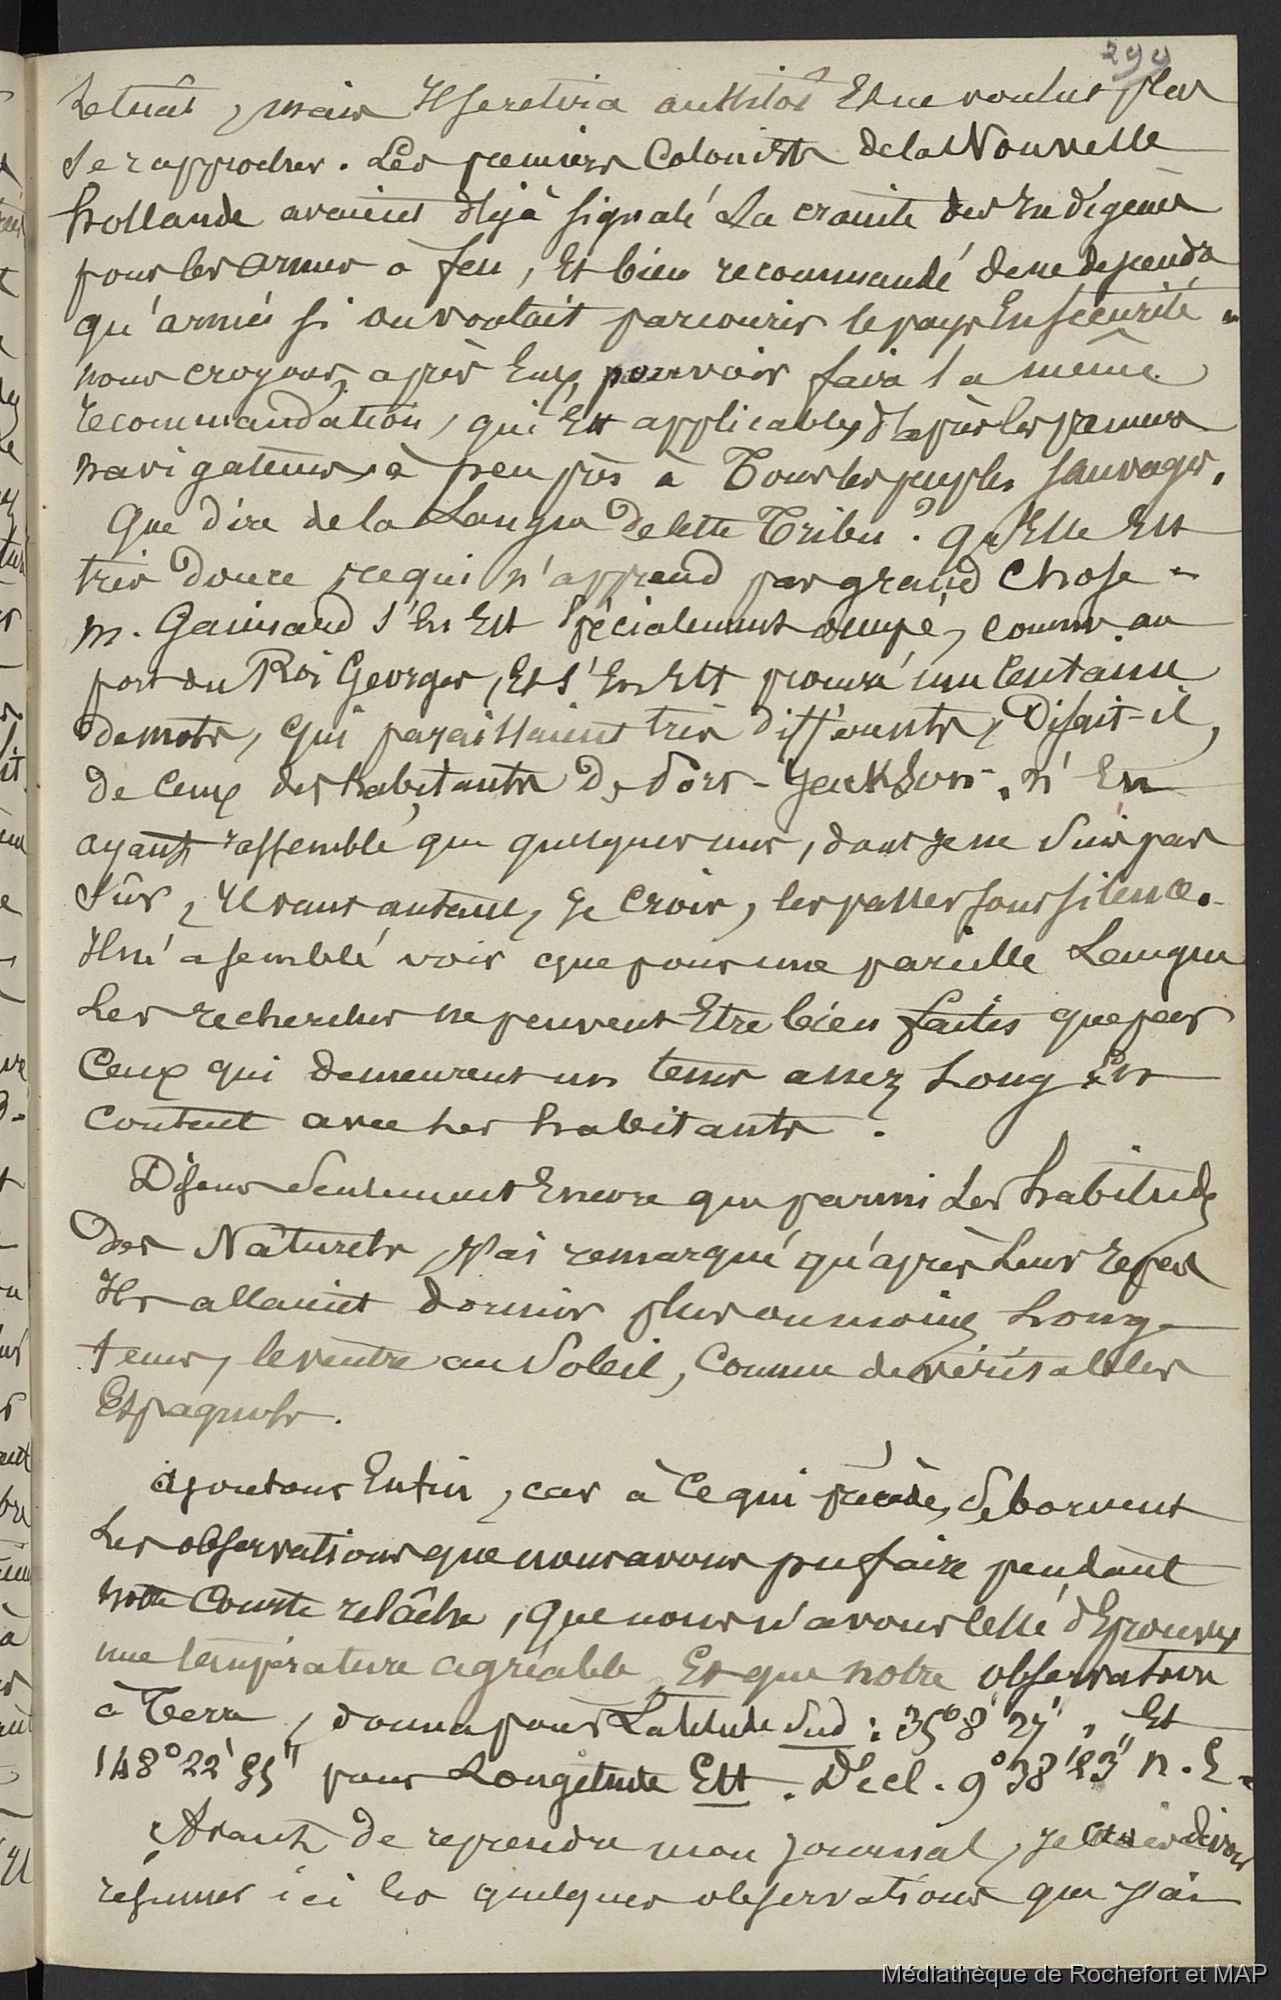 290
le tuât, mais Il se retira aussitôt Et ne voulut plus
se rapprocher. Les premiers Colonists de la Nouvelle
hollande avaient déjà signalé La crainte des Indigènes
pour les armes à feu, Et bien recommandé de ne descendre
qu'armés si on voulait parcourir le pays En sécurité.
nous croyons, après Eux, pouvoir faire la même
recommandation, qui Est applicable, d'après les premiers
navigateurs, à peu près à Tous les peuples sauvages.
Que dire de la Langue De cette Tribu? qu'Elle Est
très Douce, ce qui n'apprend pas grand Chose -
M. Gaimard s'En Est spécialement occupé, comme au
port du Roi Georges, Et s'En Est procuré une Centaine
de mots, qui paraissaient très différents, Disait-il,
de Ceux des habitants De Port-Jackson. N'En
ayant rassemblé que quelques uns, dont Je ne suis pas
sûr, Il vaut autant, Je Crois, les passer sous silence.
Il m'a semblé voir que pour une pareille Langue
Les recherches ne peuvent Etre bien faites que par
Ceux qui demeurent un tems assez Long En
contact avec Les habitants.
Disons seulement Encore que parmi Les habitudes
Des Naturels, J'ai remarqué qu'après Leur repas
Ils allaient dormir plus ou moins Long-
tems, le ventre au Soleil, Comme de véritables
Espagnols.
Ajoutons Enfin, car à Ce qui précède, se bornent
Les observations que nous avons pu faire pendant
notre Courte relâche, que nous n'avons cessé d'Eprouver
une température agréable, Et que notre observatoire
à Terre, donna pour Latitude Sud: 35° 8' 27", Et
148° 22' 55" pour Longitude Est. Décl. 9° 38' 23" N. E.
Avant de reprendre mon Journal, Je
résumer ici les quelques observations que J'ai
Médiathèque de Rochefort et MAP